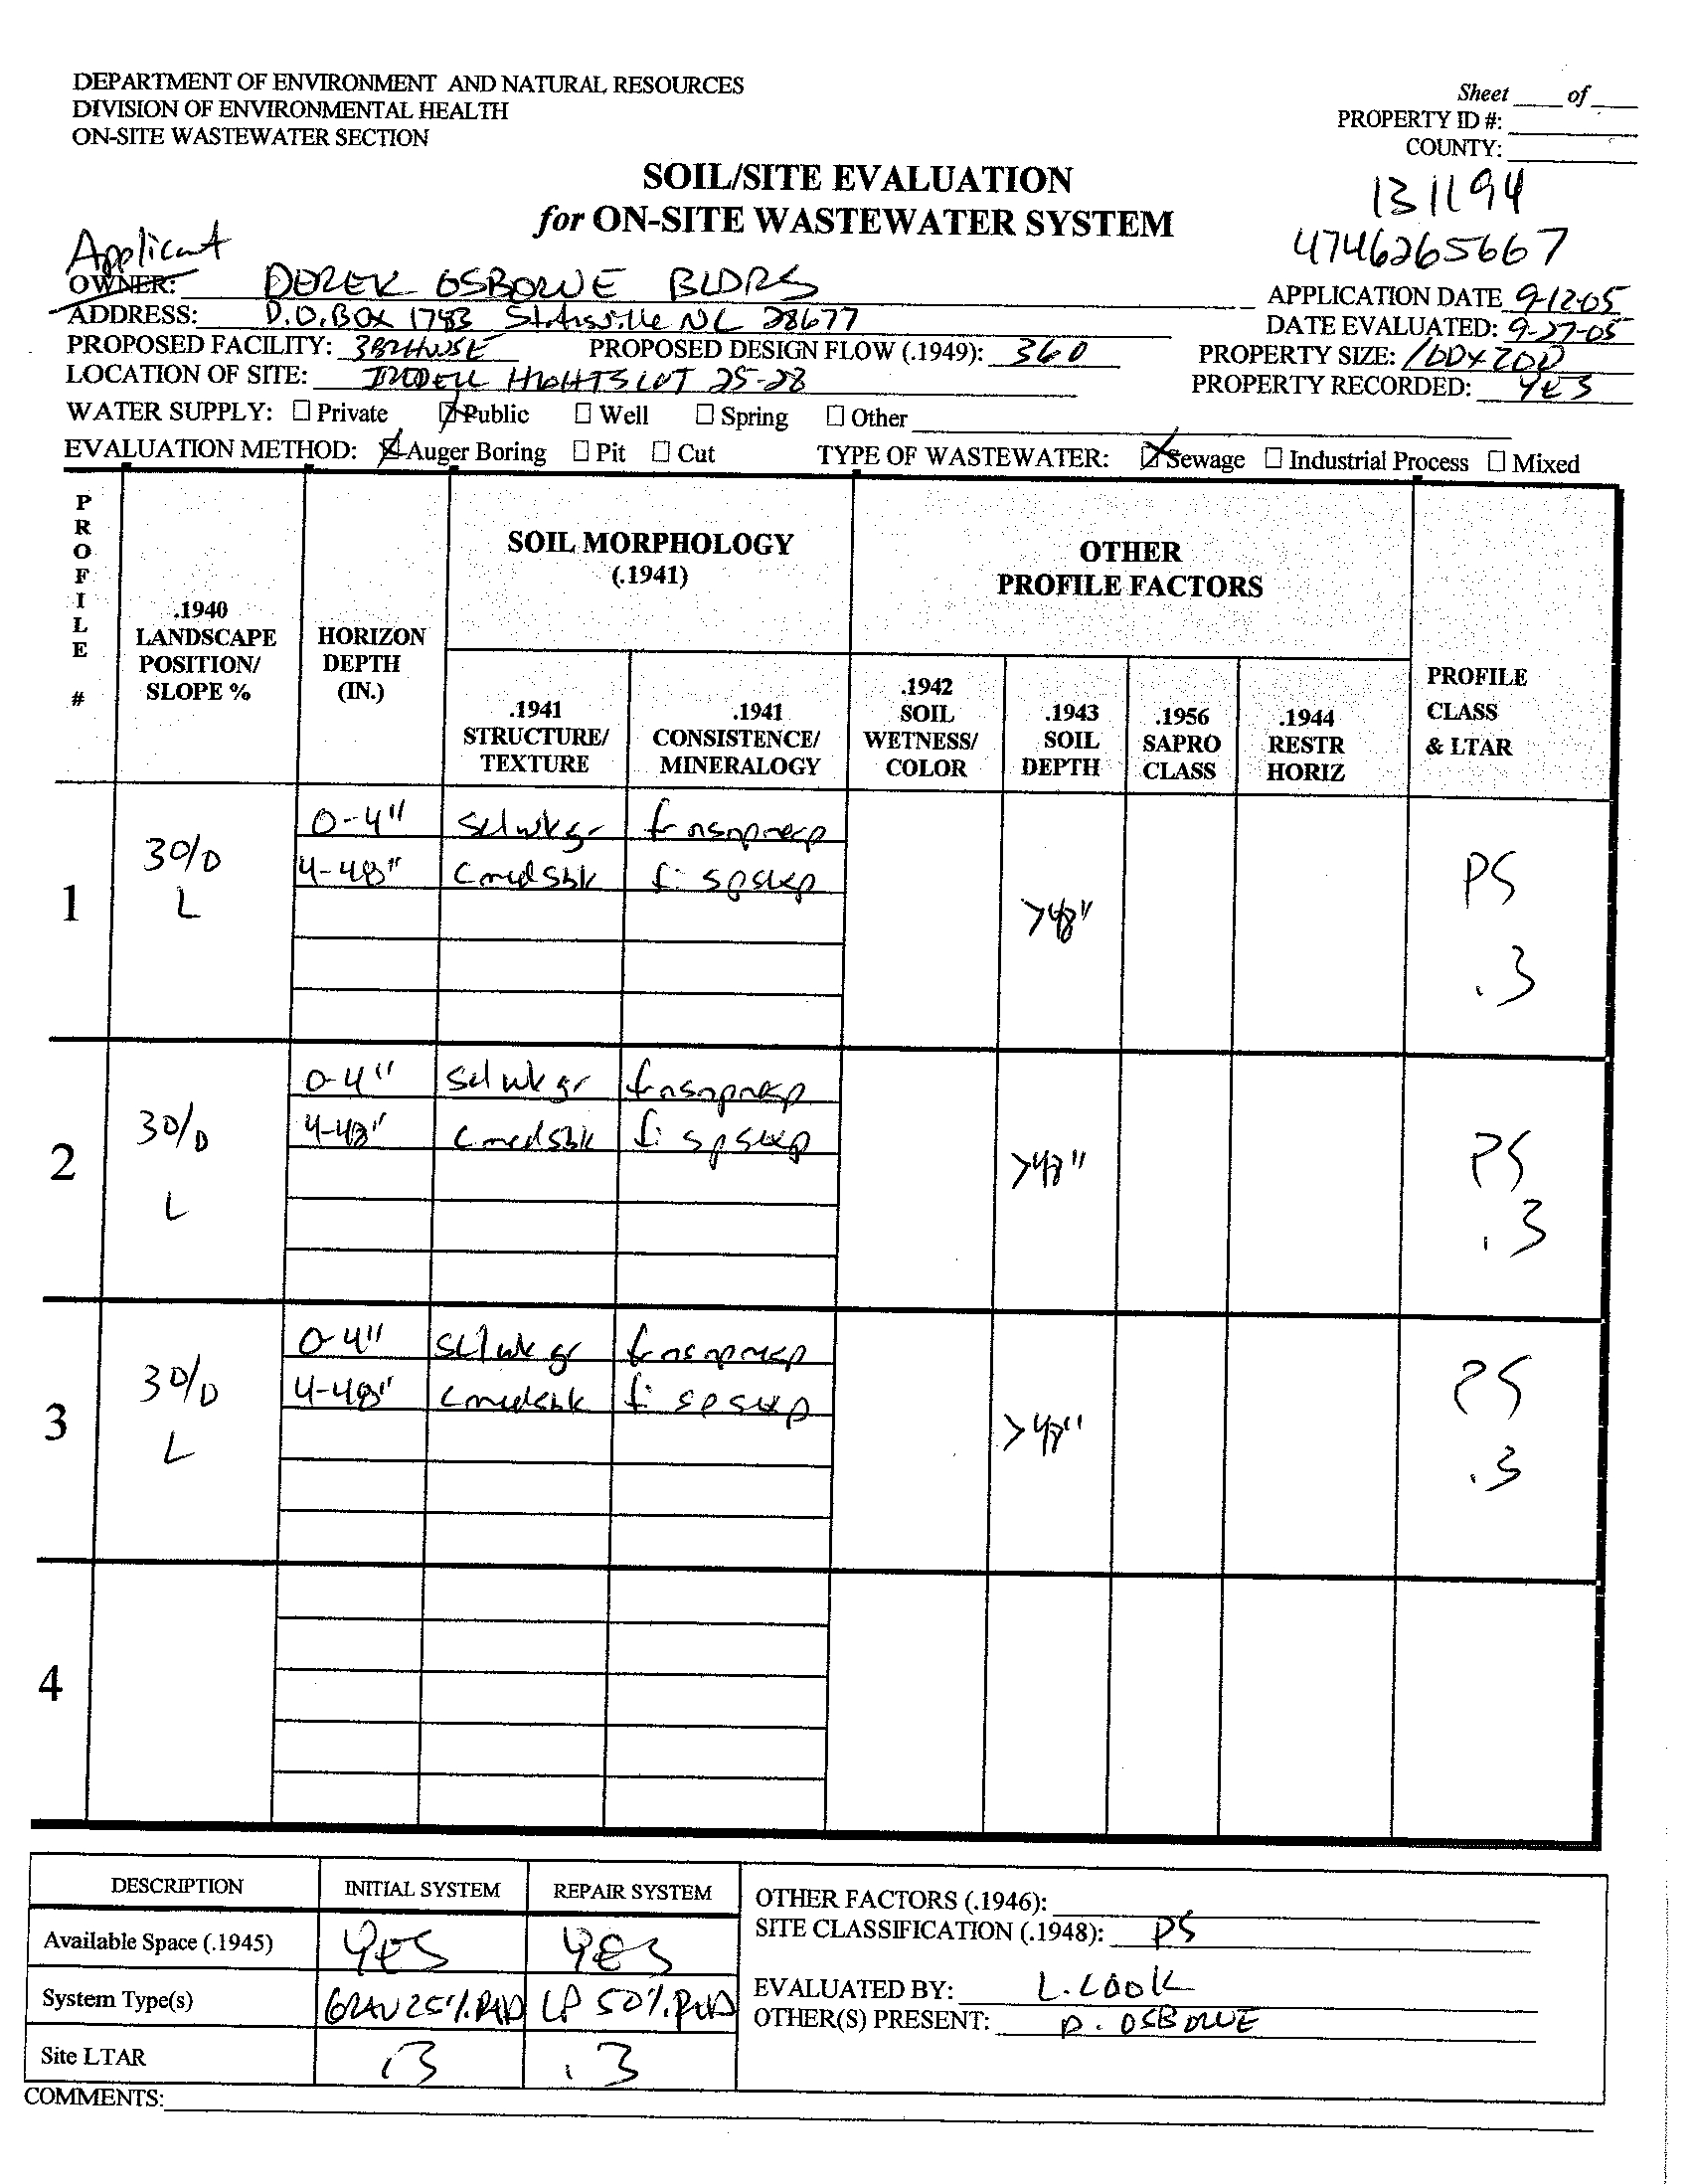 DEPARTMENT OF ENVIRONMENT AND NATURAL RESOURCES
DIVISION OF ENVIRONMENTAL HEALTH
ON-SITE WASTEWATER SECTION
Sheet ____ of ____
PROPERTY ID #:
COUNTY:
SOIL/SITE EVALUATION
for ON-SITE WASTEWATER SYSTEM
131194
4746265667
Applicant
OWNER: DEREK OSBORNE BLDRS
ADDRESS: P.O. BOX 1783 Statesville NC 28677
PROPOSED FACILITY: 3BRHOUSE PROPOSED DESIGN FLOW (.1949): 360
LOCATION OF SITE: IREDELL HIGHTS LOT 25-28
APPLICATION DATE 9-12-05
DATE EVALUATED: 9-27-05
PROPERTY SIZE: 100x200
PROPERTY RECORDED: YES
WATER SUPPLY: Private Public Well Spring Other
EVALUATION METHOD: Auger Boring Pit Cut TYPE OF WASTEWATER: Sewage Industrial Process Mixed
PROFILE #
.1940 LANDSCAPE POSITION/ SLOPE %
HORIZON DEPTH (IN.)
SOIL MORPHOLOGY (.1941)
OTHER PROFILE FACTORS
.1941 STRUCTURE/ TEXTURE
.1941 CONSISTENCE/ MINERALOGY
.1942 SOIL WETNESS/ COLOR
.1943 SOIL DEPTH
.1956 SAPRO CLASS
.1944 RESTR HORIZ
PROFILE CLASS & LTAR
1
3% L
0-4" scl wk gr fr nsnpnexp
4-48" c med sbk fi spsexp
>48"
PS .3
2
3% L
0-4" scl wk gr fr nsnpnexp
4-48" c med sbk fi spsexp
>48"
PS .3
3
3% L
0-4" scl wk gr fr nsnpnexp
4-48" c med sbk fi spsexp
>48"
PS .3
4
DESCRIPTION INITIAL SYSTEM REPAIR SYSTEM
Available Space (.1945) YES YES
System Type(s) GRAV 25% RED LP 50% RED
Site LTAR .3 .3
OTHER FACTORS (.1946):
SITE CLASSIFICATION (.1948): PS
EVALUATED BY: L. COOK
OTHER(S) PRESENT: D. OSBORNE
COMMENTS: